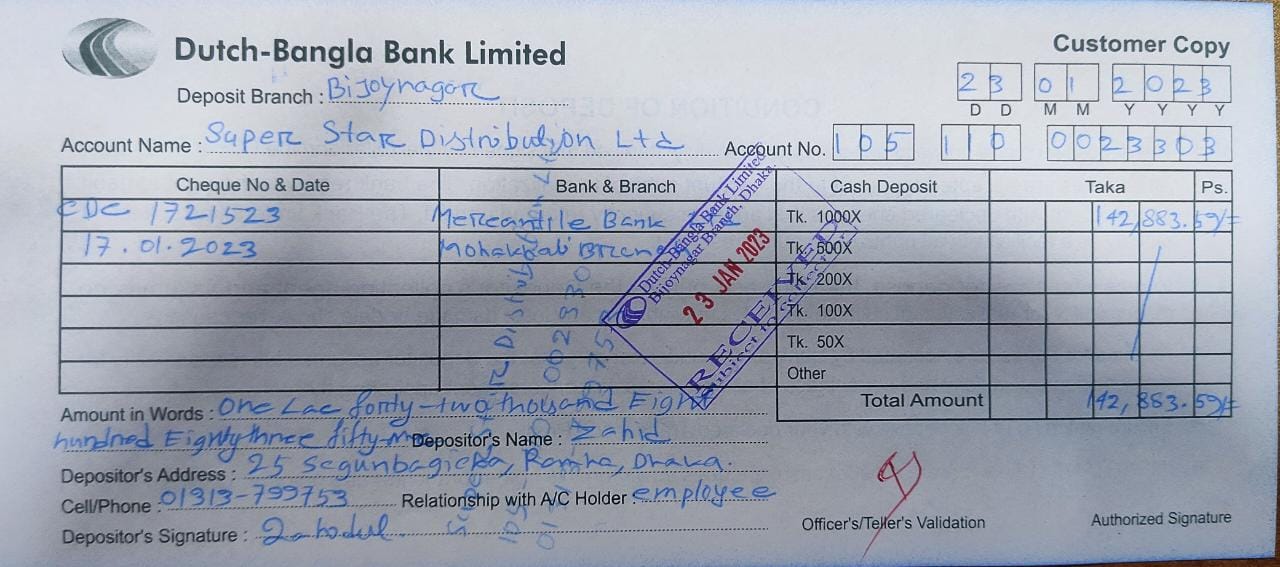 Dutch-Bangla Bank Limited
Customer Copy
Deposit Branch : Bijoynagar
23 01 2023
D D M M Y Y Y Y
Account Name : Super Star Distribution Ltd
Account No. 105 110 0023303
Cheque No & Date Bank & Branch Cash Deposit Taka Ps.
CDC 1721523 Mercantile Bank Tk. 1000X 142,883.59/=
17.01.2023 Mohakhali Tk. 500X
Tk. 200X
Tk. 100X
Tk. 50X
Other
Total Amount 142,883.59/=
Dutch-Bangla Bank Limited
Bijoynagar Branch, Dhaka.
23 JAN 2023
RECEIVED
Subject to
Amount in Words : One Lac forty-two thousand Eight
hundred Eighty three fifty-nine Depositor's Name : Zahid
Depositor's Address : 25 Segunbagicha, Ramna, Dhaka.
Cell/Phone : 01313-799753 Relationship with A/C Holder : employee
Depositor's Signature :
Officer's/Teller's Validation
Authorized Signature